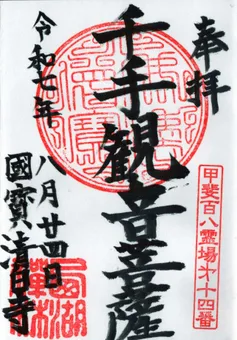 奉拝
甲斐百八霊場第十四番
千手観音菩薩
令和七年
八月廿四日
國寳清白寺